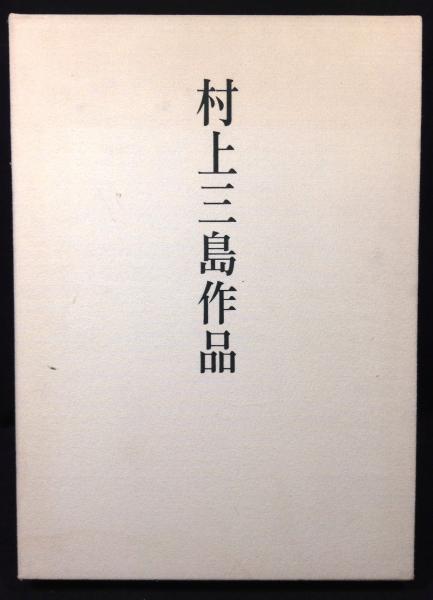 村上三島作品